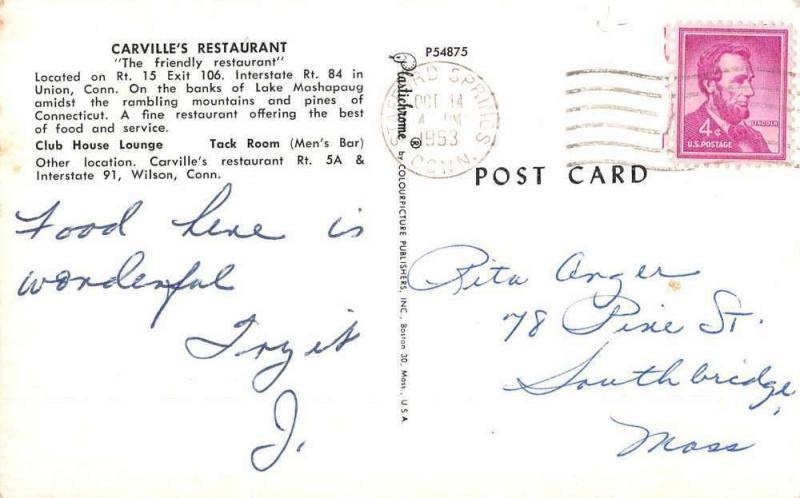 CARVILLE'S RESTAURANT
"The friendly restaurant"
Located on Rt. 15 Exit 106. Interstate Rt. 84 in
Union, Conn. On the banks of Lake Mashapaug
amidst the rambling mountains and pines of
Connecticut. A fine restaurant offering the best
of food and service.
Club House Lounge Tack Room (Men's Bar)
Other location. Carville's restaurant Rt. 5A &
Interstate 91, Wilson, Conn.
Food here is
wonderful
Try it
J.
Plastichrome ® by COLOURPICTURE PUBLISHERS, INC., Boston 30, Mass., U.S.A.
P54875
STAFFORD SPRINGS
OCT 14
4 PM
1963
CONN.
LINCOLN
4¢
U.S. POSTAGE
POST CARD
Rita Anger
78 Pine St.
Southbridge,
Mass